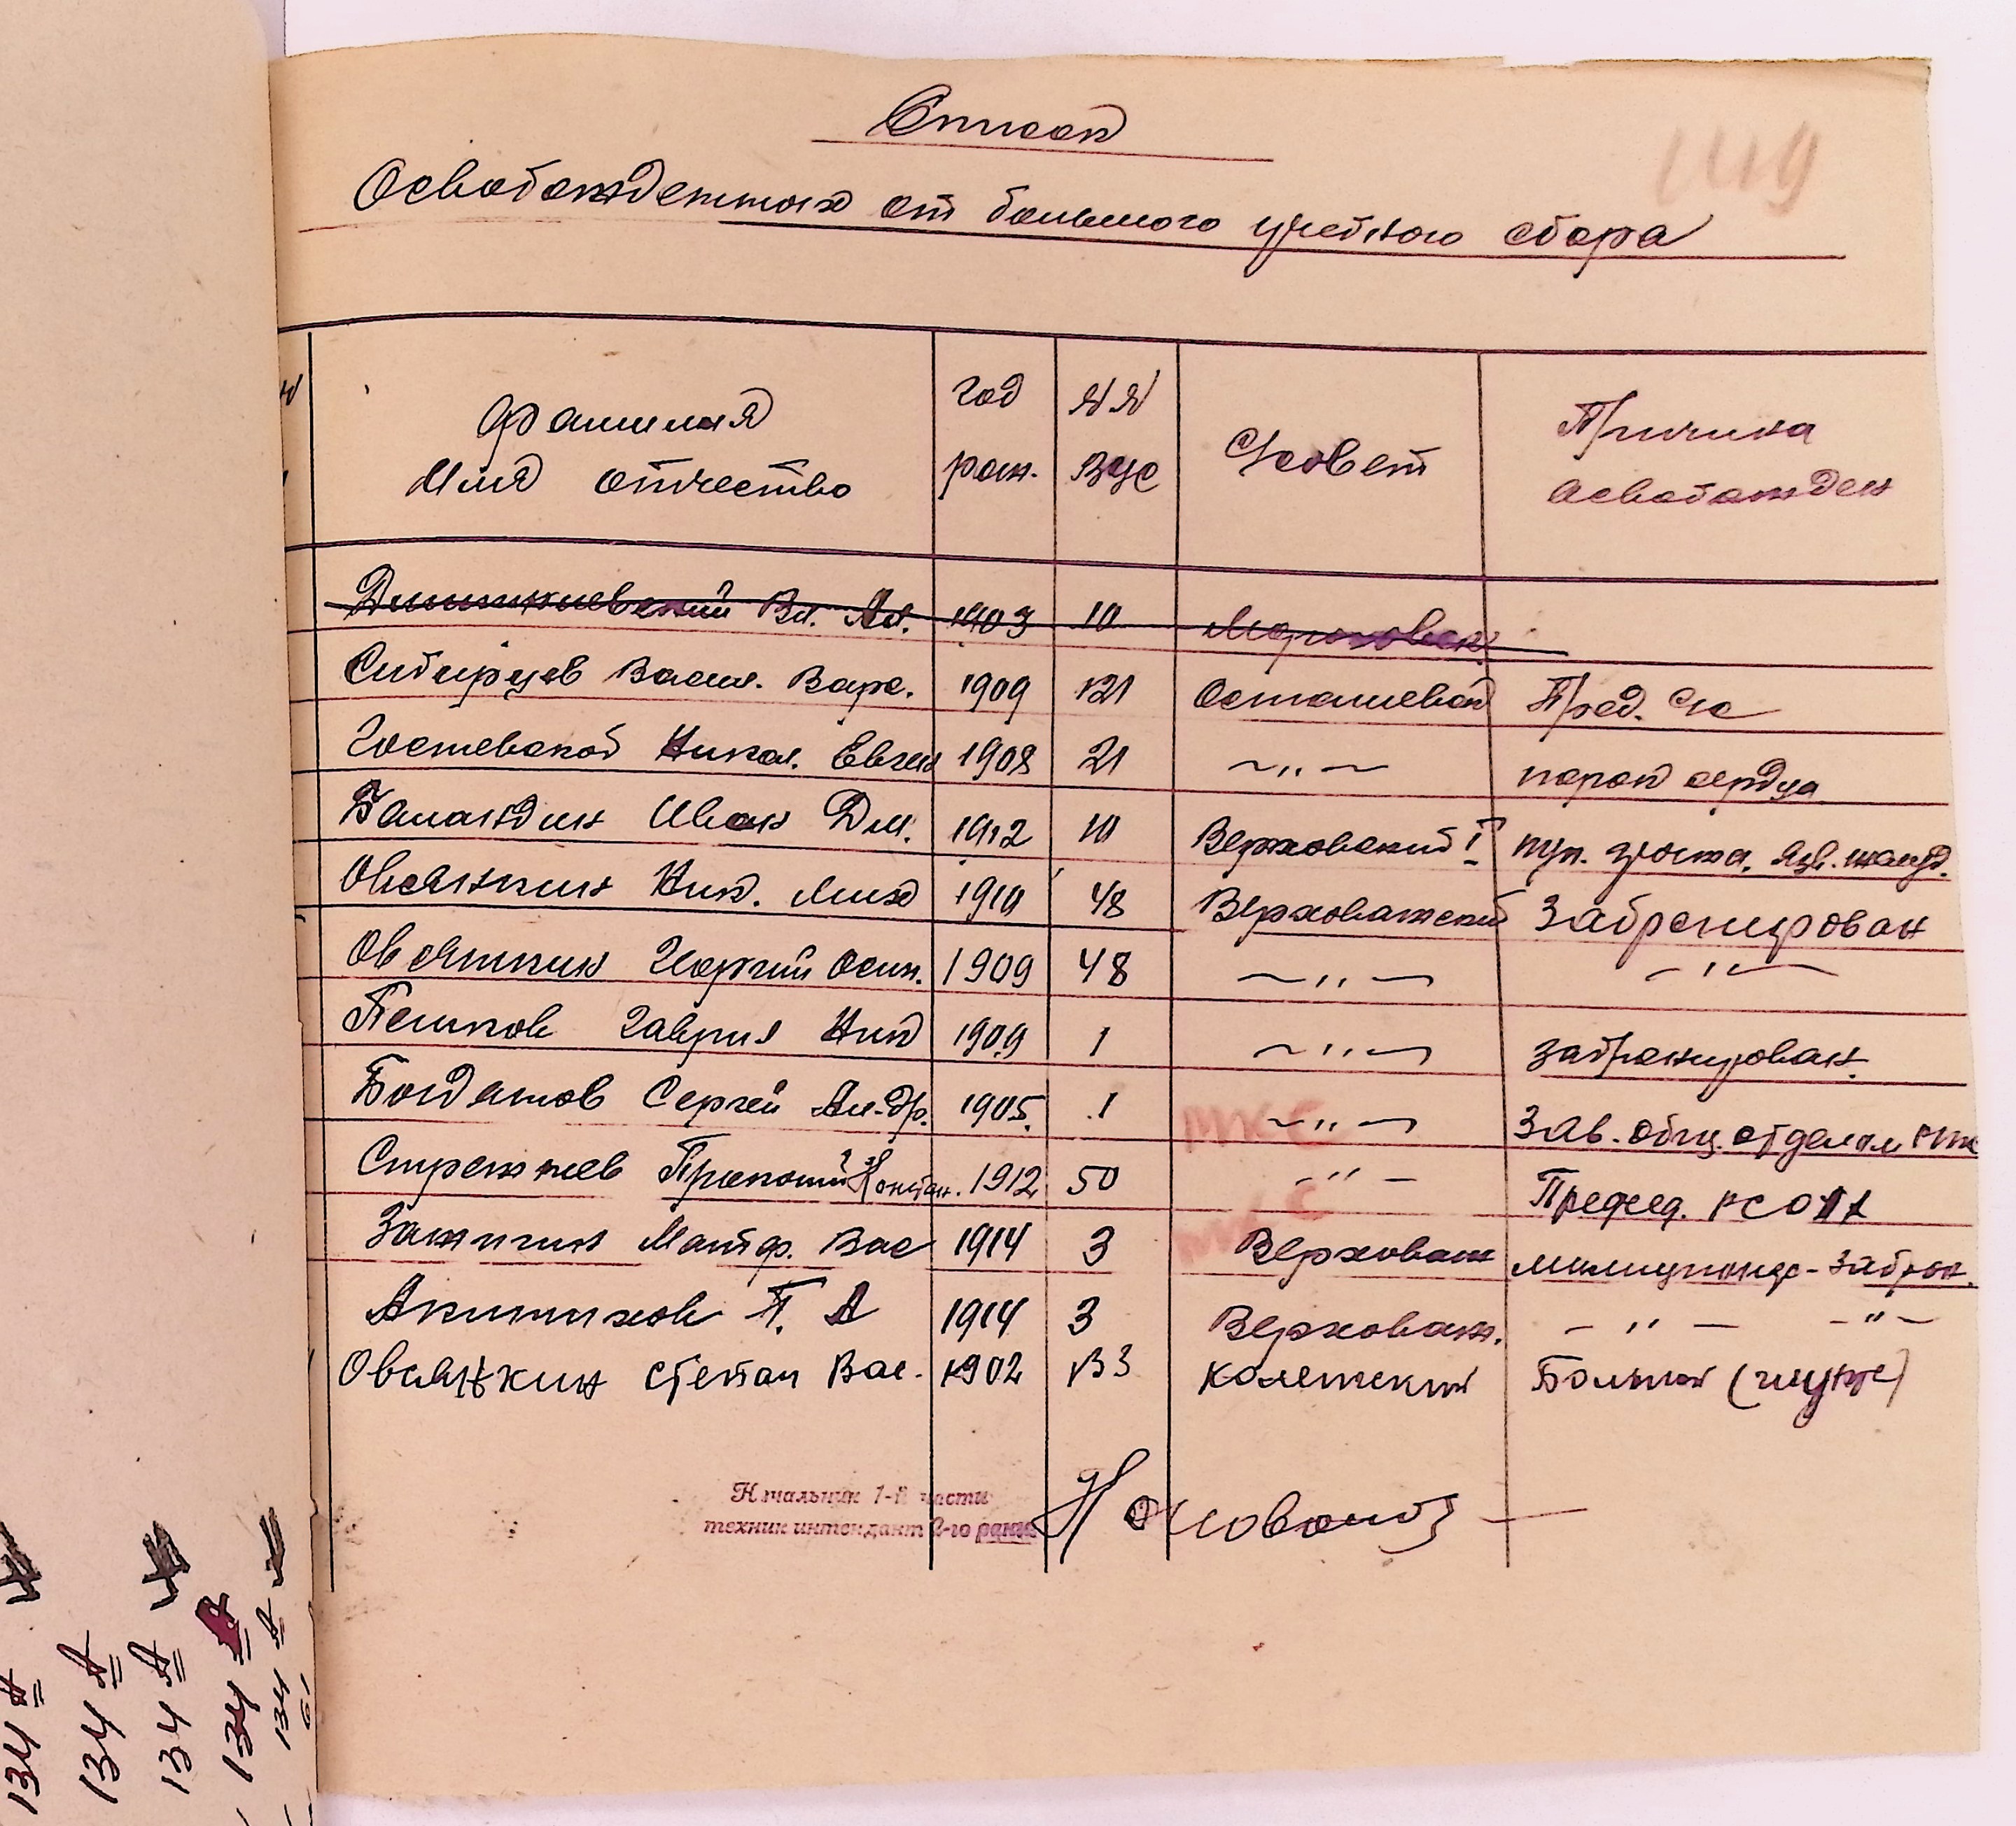 Список
149
Освобожденных от большого учебного сбора
Фамилия
Имя отчество
год
рож.
№№
ВУС
С/совет
Причина
освобожден
Вл. Ал. 1903 10 Морозовск.
Сибирцев Васил. Варс. 1909 121 Осташевск Пред. С/с
Гостевской Никол. Евген 1908 21 —"— порок сердца
Баландин Иван Дм. 1912 10 Верховский I язв. желуд.
Овсянкин Ник. Мих 1910 48 Верховажский Забронирован
Овсянкин Георгий Осип. 1909 48 —"— —"—
Пешков Гаврил Ник 1909 1 —"— забронирован.
Богданов Сергей Ал-др. 1905. 1 —"— Зав. общ. отделом РИК
МКС
Стрежнев Прокопий Констан. 1912 50 —"— Председ. РСОАХ
Зажигин Матф. Вас 1914 3 Верховаж милиционер-заброн.
Акиньхов П. А 1914 3 Верховаж. —"— —"—
Овсянкин Степан Вас. 1902 133 Колетский Больной (грыжа)
Начальник 1-й части
техник интендант 2-го ранга
134 А
134 А
134 А
134 А
134 А